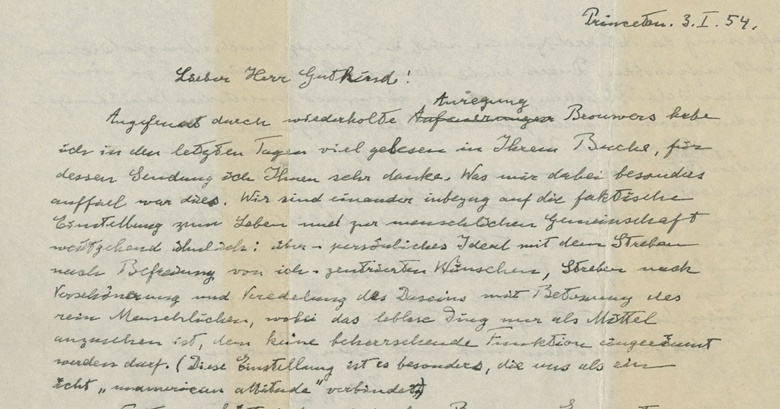 Princeton. 3. I. 54.
Lieber Herr Gutkind!
Anregung
Angefeuert durch wiederholte Brouwers habe
ich in den letzten Tagen viel gelesen in Ihrem Buche, für
dessen Sendung ich Ihnen sehr danke. Was mir dabei besonders
auffiel war dies. Wir sind einander inbezug auf die faktische
Einstellung zum Leben und zur menschlichen Gemeinschaft
weitgehend ähnlich: über-persönliches Ideal mit dem Streben
nach Befreiung von ich-zentrierten Wünschen, Streben nach
Verschönerung und Veredelung des Daseins mit Betonung des
rein Menschlichen, wobei das leblose Ding nur als Mittel
anzusehen ist, dem keine beherrschende Funktion eingeräumt
werden darf. (Diese Einstellung ist es besonders, die uns als ein
echt „unamerican attitude" verbindet.)